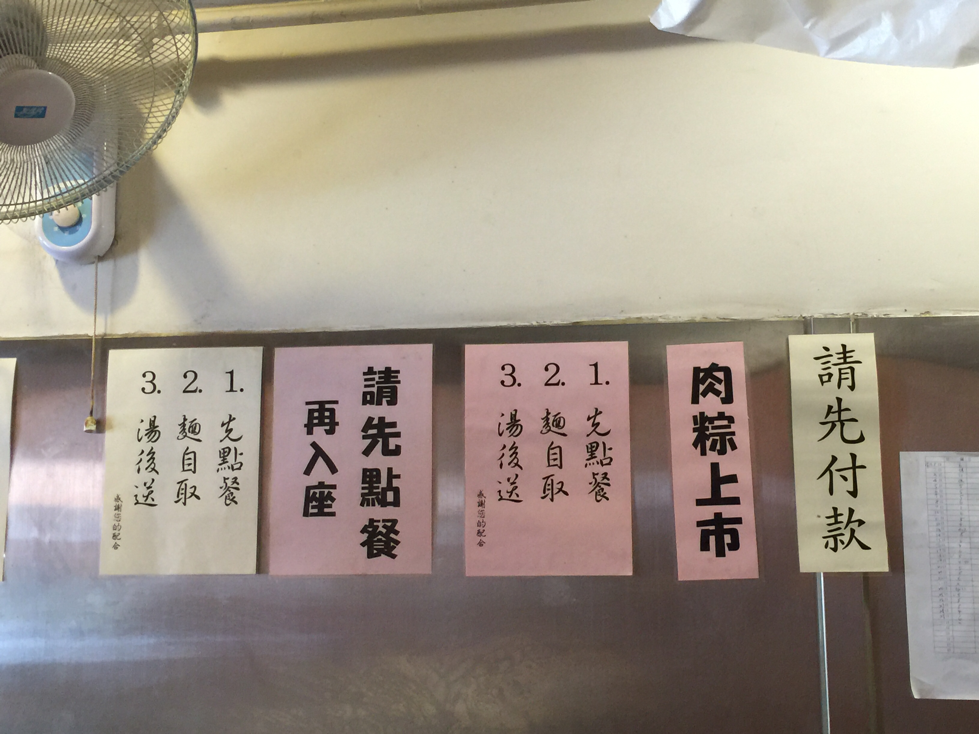 請先付款
肉粽上市
1. 先點餐
2. 麵自取
3. 湯後送
感謝您的配合
請先點餐
再入座
1. 先點餐
2. 麵自取
3. 湯後送
感謝您的配合